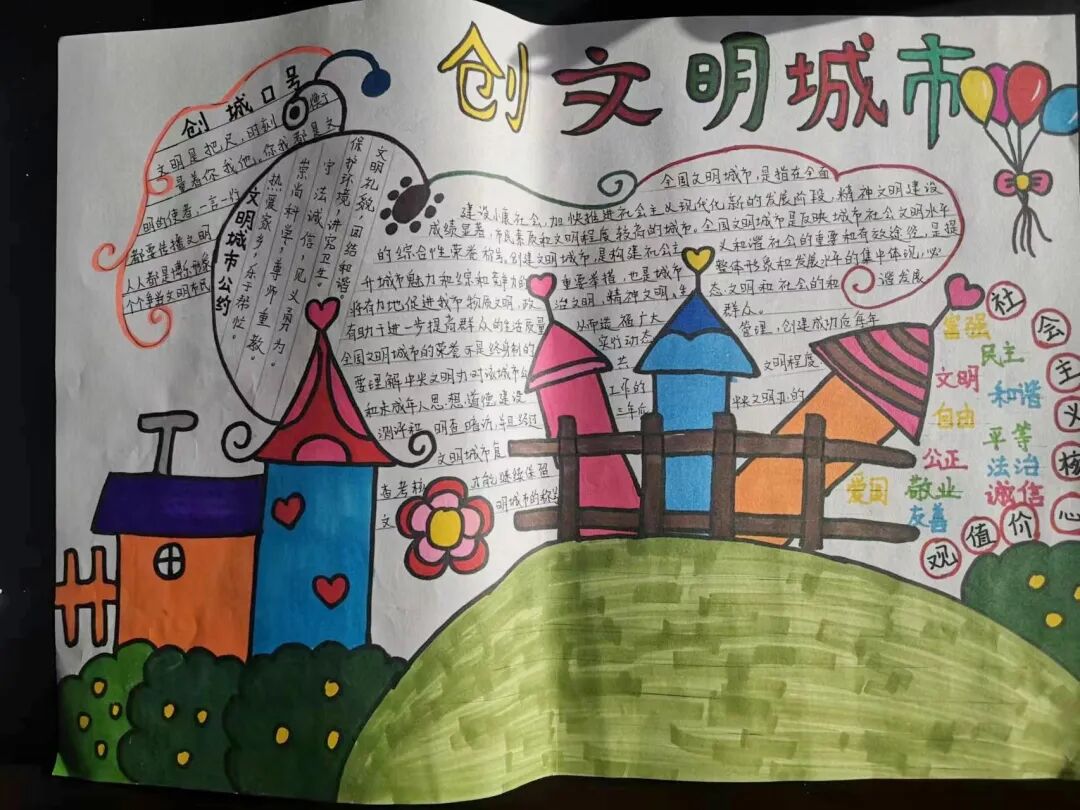 创文明城市
创城口号
文明是把尺，时刻
量着你我他。你我都是文
明的使者，一言一行
都要传播文明
人人都是博兴形象
个个争当文明市民
文明城市公约
热爱家乡，乐于帮忙。
崇尚科学，尊师重教。
守法诚信，见义勇为
保护环境，讲究卫生。
文明礼貌，团结和谐。
全国文明城市，是指在全面
建设小康社会，加快推进社会主义现代化新的发展阶段，精神文明建设
成绩显著，市民素质和文明程度较高的城市。全国文明城市是反映城市社会文明水平
的综合性荣誉称号。创建文明城市，是构建社会主义和谐社会的重要和有效途径，是提
升城市魅力和综和竞争力的重要举措，也是城市整体形象和发展水平的集中体现，必
将有力地促进我市物质文明，政治文明，精神文明，生态文明和社会的和谐发展
有助于进一步提高群众的生活质量 从而造福广大群众。
全国文明城市的荣誉不是终身制的 实行动态管理，创建成功后每年
要理解中央文明办对该城市公共文明程度
和未成年人思想道德建设工作的
测评和 明查暗访，并且经过三年后 中央文明办的
文明城市复
查考核 才能继续保留
文明城市的称号
社会主义核心价值观
富强
民主
文明
和谐
自由
平等
公正
法治
爱国
敬业
诚信
友善